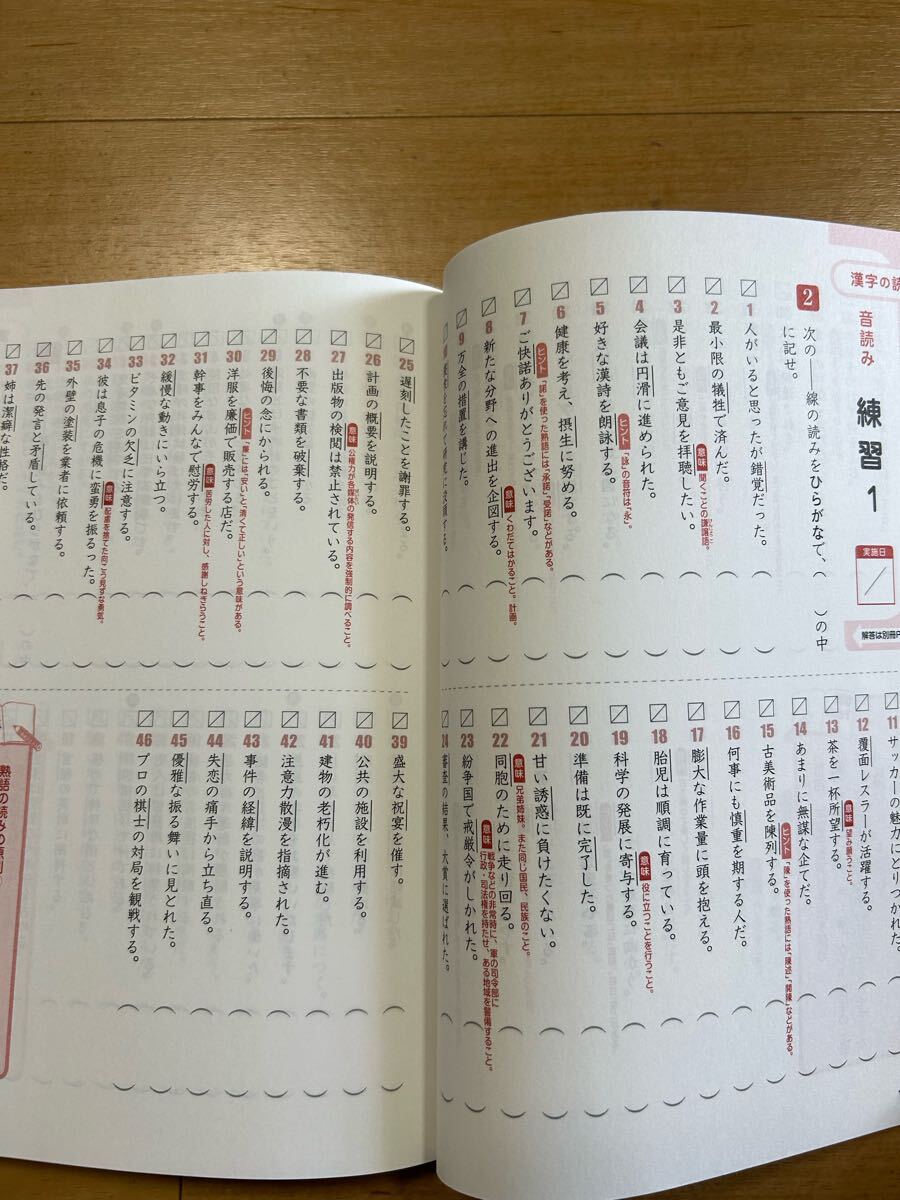 漢字の読
音読み 練習 1
実施日
解答は別冊P
2 次の――線の読みをひらがなで、( )の中に記せ。
1 人がいると思ったが錯覚だった。
2 最小限の犠牲で済んだ。
3 是非ともご意見を拝聴したい。
意味 聞くことの謙譲語。
4 会議は円滑に進められた。
5 好きな漢詩を朗詠する。
ヒント 「詠」の音符は「永」。
6 健康を考え、摂生に努める。
7 ご快諾ありがとうございます。
ヒント 「諾」を使った熟語には、「承諾」「受諾」などがある。
8 新たな分野への進出を企図する。
意味 くわだてはかること。計画。
9 万全の措置を講じた。
11 サッカーの魅力にとりつかれた。
12 覆面レスラーが活躍する。
13 茶を一杯所望する。
意味 望み願うこと。
14 あまりに無謀な企てだ。
15 古美術品を陳列する。
ヒント 「陳」を使った熟語には、「陳述」「開陳」などがある。
16 何事にも慎重を期する人だ。
17 膨大な作業量に頭を抱える。
18 胎児は順調に育っている。
19 科学の発展に寄与する。
意味 役に立つことを行うこと。
20 準備は既に完了した。
21 甘い誘惑に負けたくない。
22 同胞のために走り回る。
意味 兄弟姉妹。また同じ国民、民族のこと。
23 紛争国で戒厳令がしかれた。
意味 戦争などの非常時に、軍の司令部に行政・司法権を持たせ、ある地域を警備すること。
24 審査の結果、大賞に選ばれた。
25 遅刻したことを謝罪する。
26 計画の概要を説明する。
27 出版物の検閲は禁止されている。
意味 公権力が各媒体の発信する内容を強制的に調べること。
28 不要な書類を破棄する。
29 後悔の念にかられる。
30 洋服を廉価で販売する店だ。
ヒント 「廉」には「安い」と「清くて正しい」という意味がある。
31 幹事をみんなで慰労する。
意味 苦労した人に対し、感謝しねぎらうこと。
32 緩慢な動きにいら立つ。
33 ビタミンの欠乏に注意する。
34 彼は息子の危機に蛮勇を振るった。
意味 配慮を捨てた向こう見ずな勇気。
35 外壁の塗装を業者に依頼する。
36 先の発言と矛盾している。
37 姉は潔癖な性格だ。
39 盛大な祝宴を催す。
40 公共の施設を利用する。
41 建物の老朽化が進む。
42 注意力散漫を指摘された。
43 事件の経緯を説明する。
44 失恋の痛手から立ち直る。
45 優雅な振る舞いに見とれた。
46 プロの棋士の対局を観戦する。
熟語の読みの原則